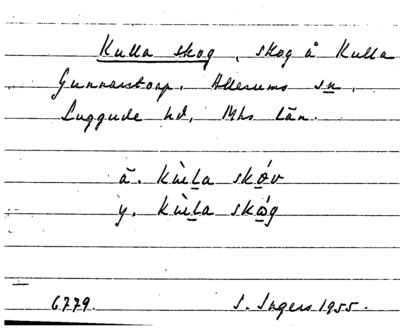 Kulla skog, skog å Kulla
Gunnarstorp, Allerums sn,
Luggude hd, Mhs län.
ä. kùlla skóv
y. kùlla skóg
6779. S. Ingers 1955.